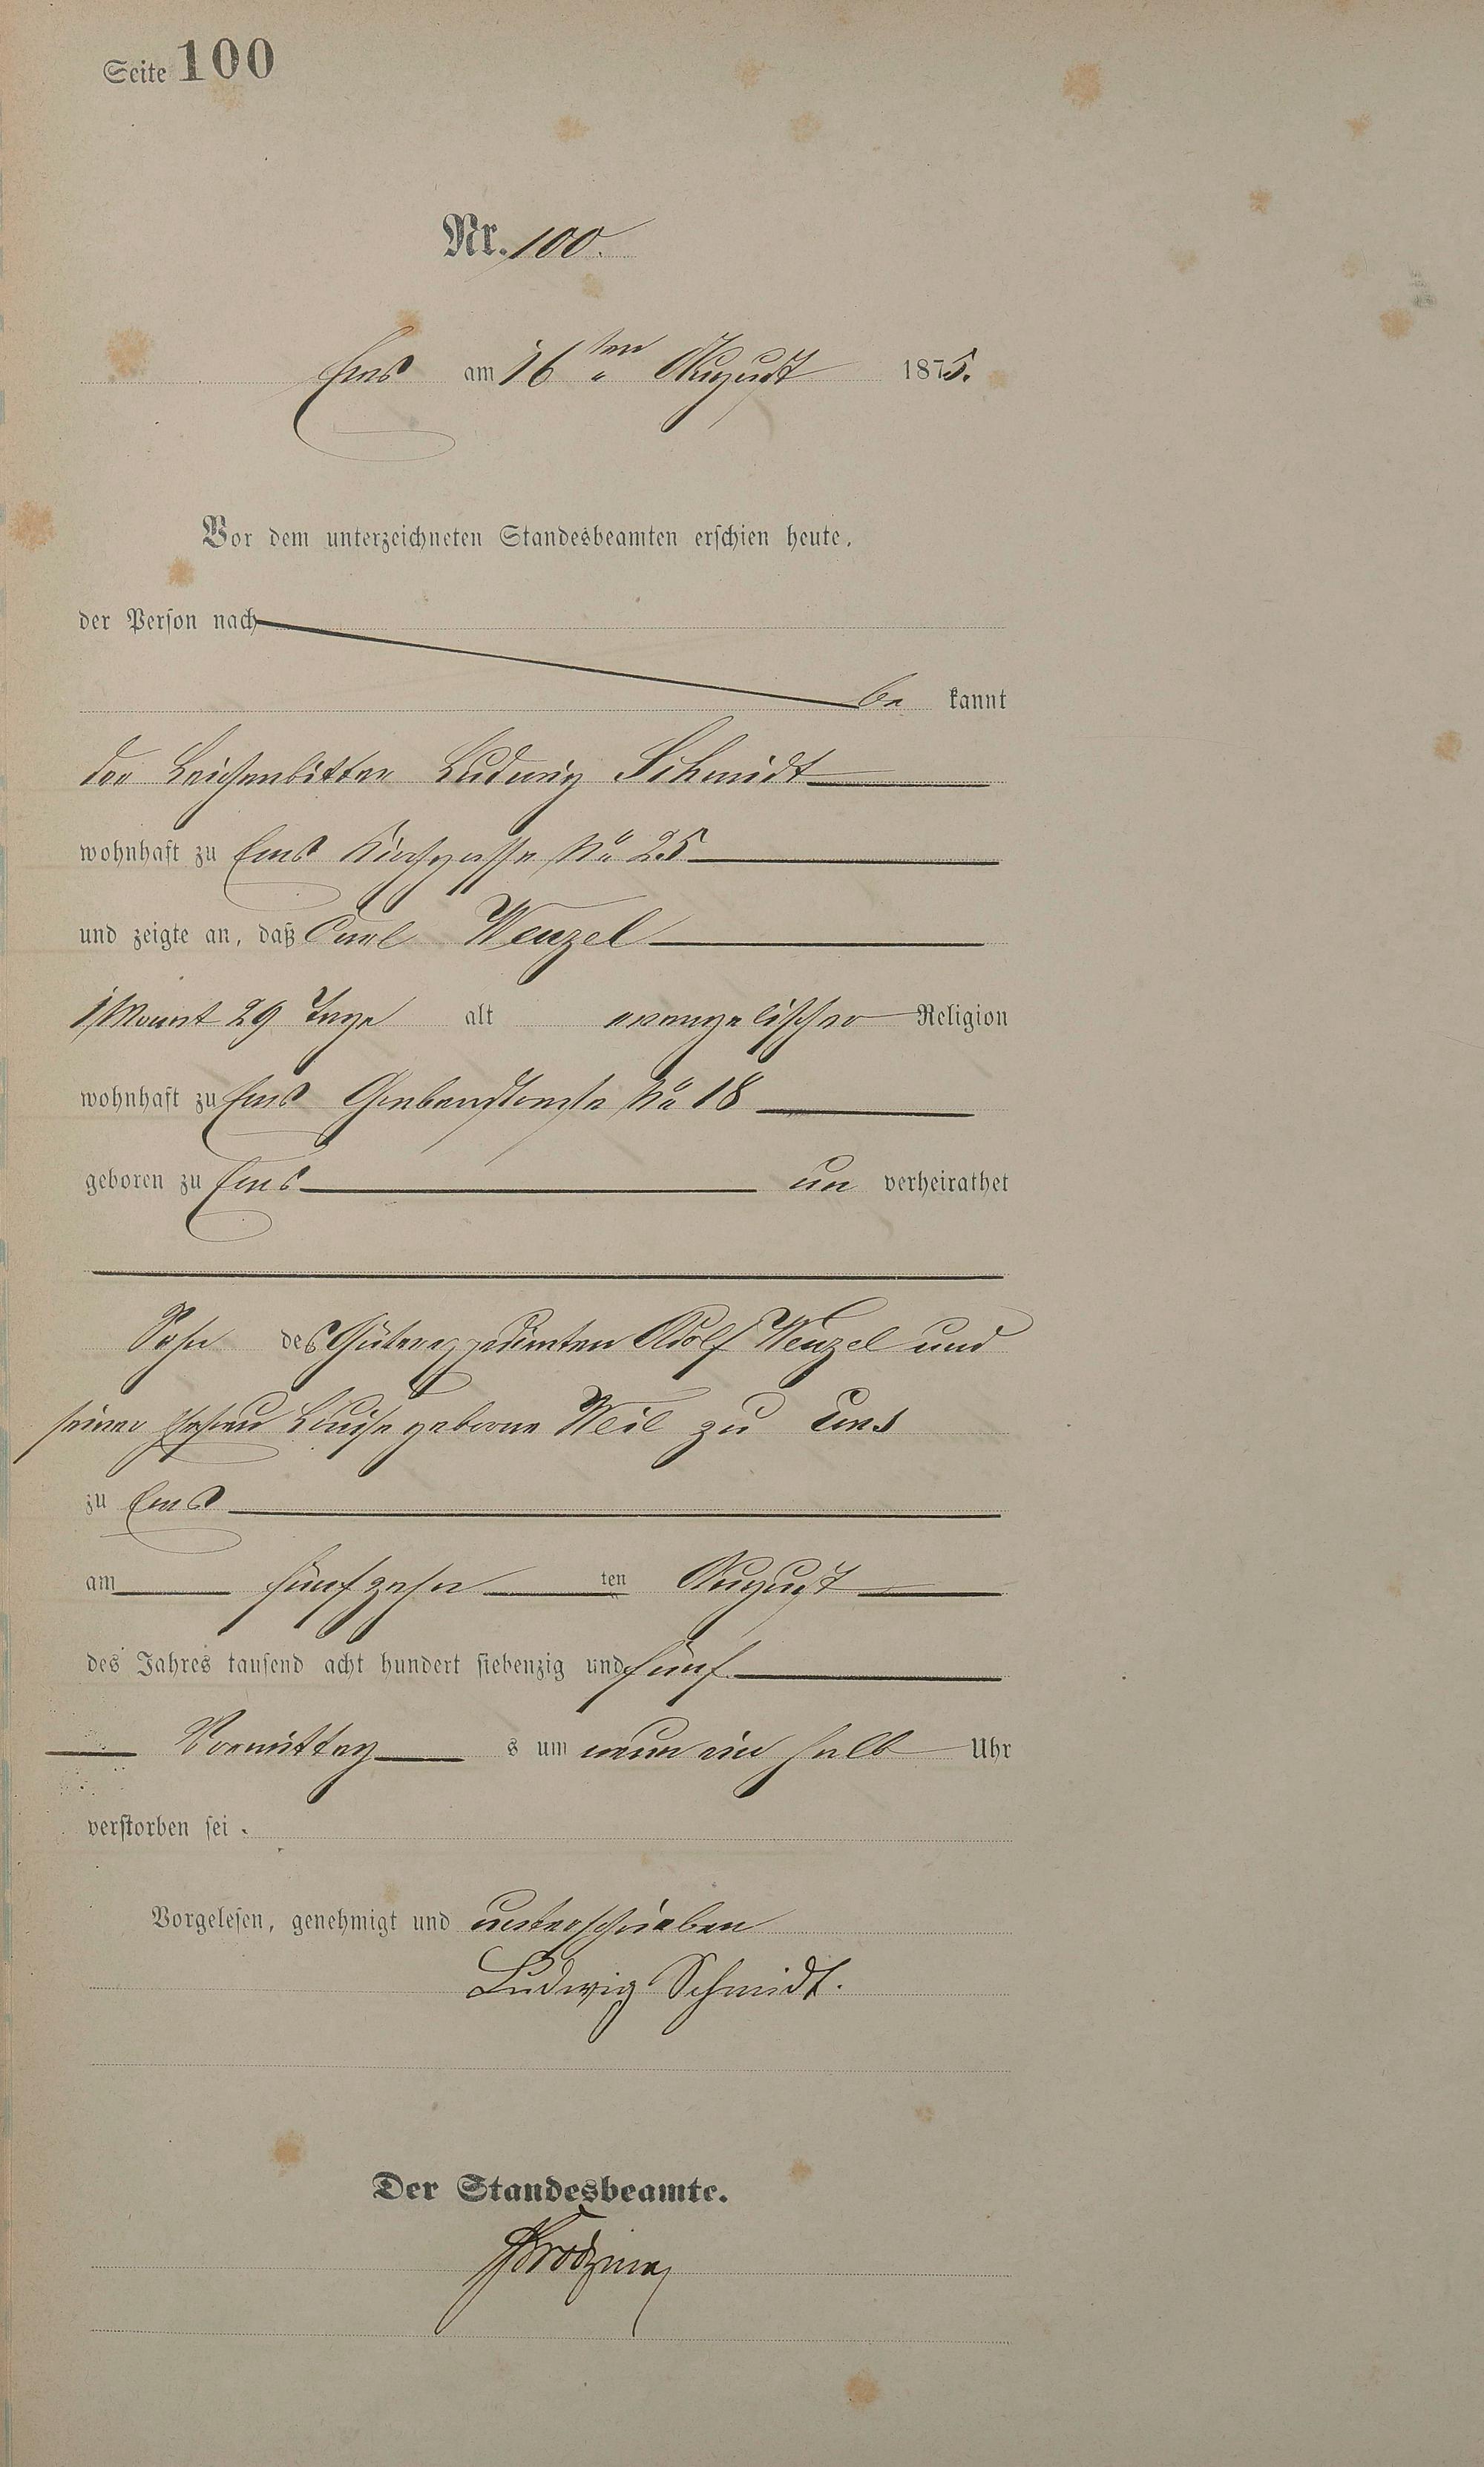 Seite 100
Nr. 100.
Ems am 16ten August 1875.
Vor dem unterzeichneten Standesbeamten erschien heute,
der Person nach
be kannt
der Leichenbitter Ludwig Schmidt
wohnhaft zu Ems Kirchgasse No 25
und zeigte an, daß Carl Wenzel
1 Monat 29 Tage alt evangelischer Religion
wohnhaft zu Ems Grabenstraße No 18
geboren zu Ems un verheirathet
Sohn des Güterexpedienten Adolf Wenzel und
seiner Ehefrau Louise geborne Weil zu Ems
zu Ems
am fünfzehn ten August
des Jahres tausend acht hundert siebenzig und fünf
Vormittag s um neun ein halb Uhr
verstorben sei.
Vorgelesen, genehmigt und unterschrieben
Ludwig Schmidt.
Der Standesbeamte.